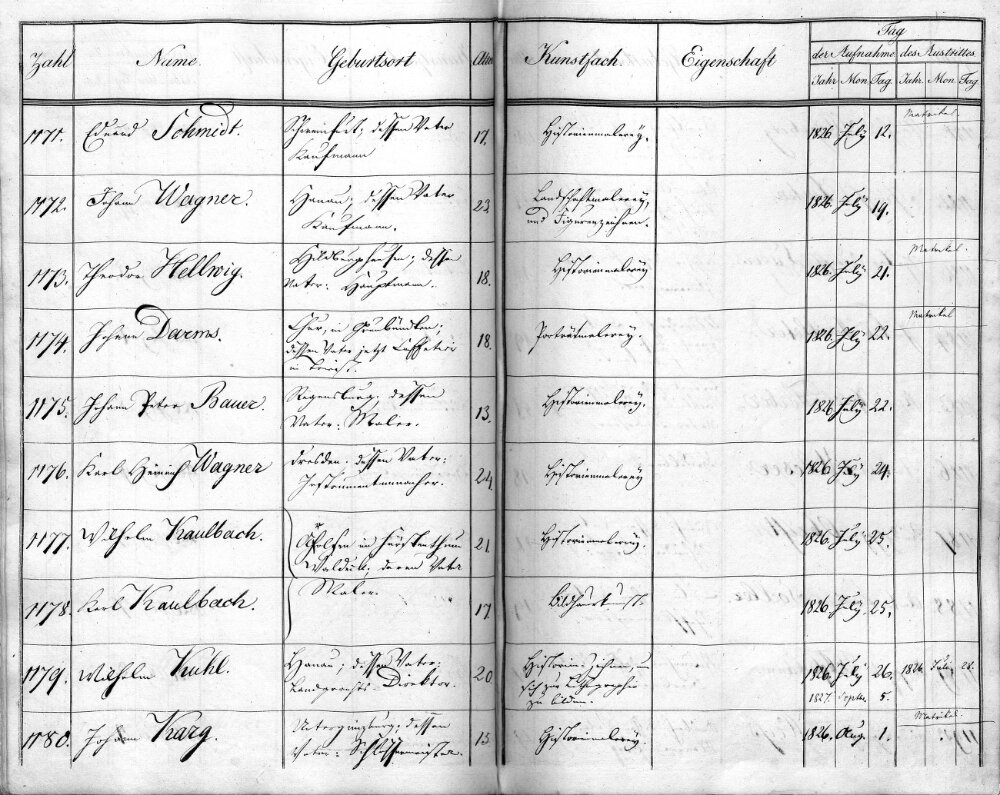 Zahl Name. Geburtsort Alter Kunstfach. Eigenschaft Tag
der Aufnahme des Austrittes
Jahr Mon Tag Jahr. Mon Tag
Matrikel.
1171. Eduard Schmidt. Schweinfurt; dessen Vater 17. Historienmalerey. 1826 July 12.
Kaufmann
1172. Johann Wagner. Hanau; dessen Vater 23 Landschaftmalerey, 1826. July 19.
Kaufmann. und Figurenzeichnen.
Matrikel.
1173. Theodor Hellwig. Hildburghausen; dessen 18. Historienmalerey 1826. July 21.
Vater: Hauptmann.
Matrikel
1174. Johann Darms. Chur, in Graubünden; 18. Porträtmalerey. 1826 July 22.
dessen Vater jetzt Caffetier
in
1175. Johann Peter Bauer. Regensburg, dessen 13. Historienmalerey. 1826 July 22.
Vater: Maler.
1176. Karl Heinrich Wagner Dresden. dessen Vater: 24. Historienmalerey 1826 July 24.
Instrumentenmacher.
1177. Wilhelm Kaulbach. Arolsen im Fürstenthum 21 Historienmalerey. 1826. July 25.
Waldeck; deren Vater
1178. Karl Kaulbach. Maler. 17 Bildhauerkunst. 1826 July. 25.
1179. Wilhelm Kuhl. Hanau; dessen Vater: 20 Historien Zeichnen, um 1826. July 26. 1826. July. 28.
Landgerichts-Direktor. sich zur Lithographie 1827. Septbr. 5.
zu bilden.
Matrikel.
1180. Johann Karg. Untergünzburg; dessen 15 Historienmalerey. 1826. Aug. 1.
Vater: Schlossermeister.